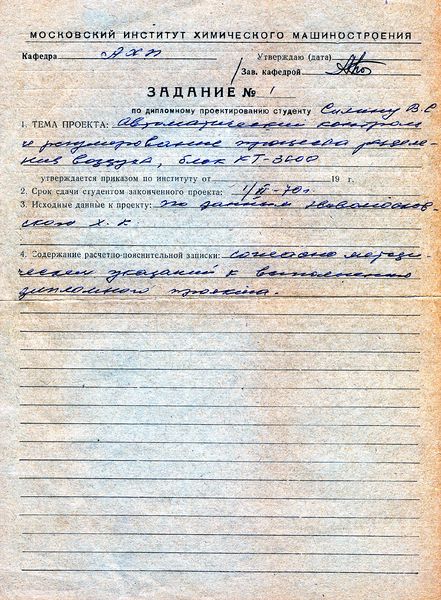 МОСКОВСКИЙ ИНСТИТУТ ХИМИЧЕСКОГО МАШИНОСТРОЕНИЯ
Кафедра АХП Утверждаю (дата)
Зав. кафедрой
ЗАДАНИЕ № 1
по дипломному проектированию студенту Силину В.С
1. ТЕМА ПРОЕКТА: Автоматический контроль
и регулирование процесса разделе-
ния воздуха, блок КТ-3600
утверждается приказом по институту от 19 г.
2. Срок сдачи студентом законченного проекта: 1/VI-70г
3. Исходные данные к проекту: по данным Новомосков-
ского х.к
4. Содержание расчетно-пояснительной записки: согласно методи-
ческих указаний к выполнению
дипломного проекта.